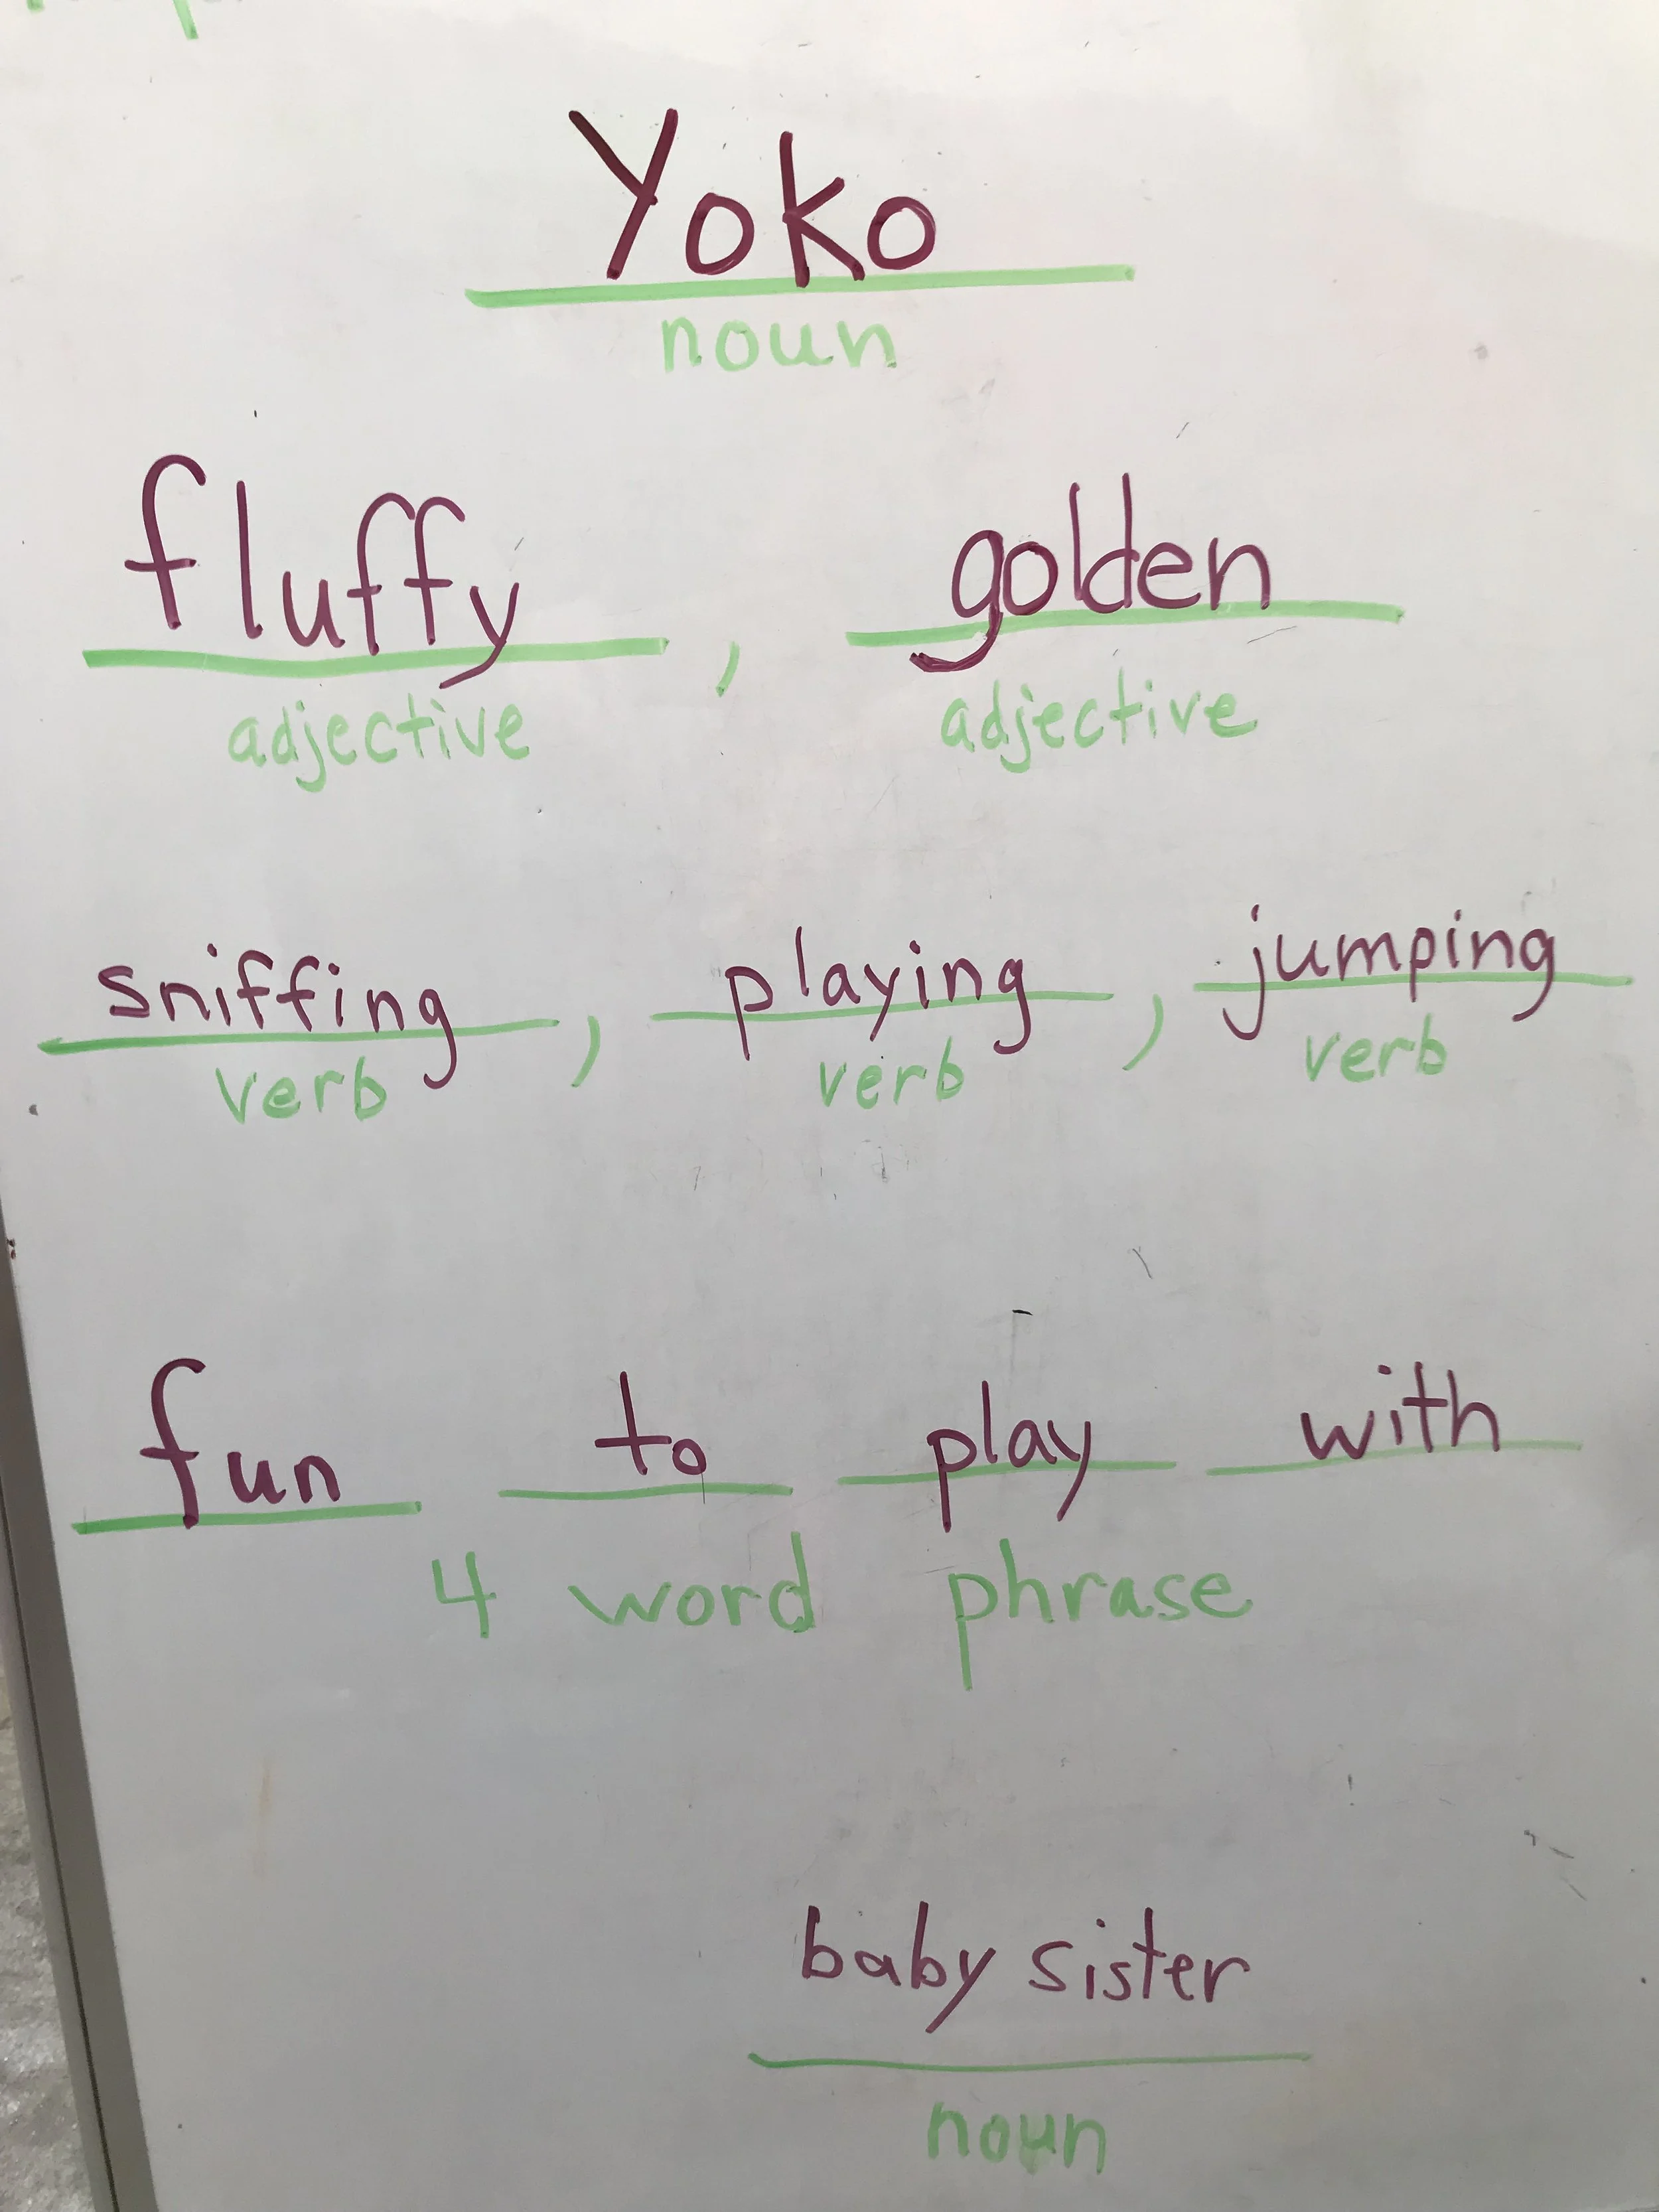 Yoko
noun
fluffy , golden
adjective adjective
sniffing , playing , jumping
verb verb verb
fun to play with
4 word phrase
baby sister
noun